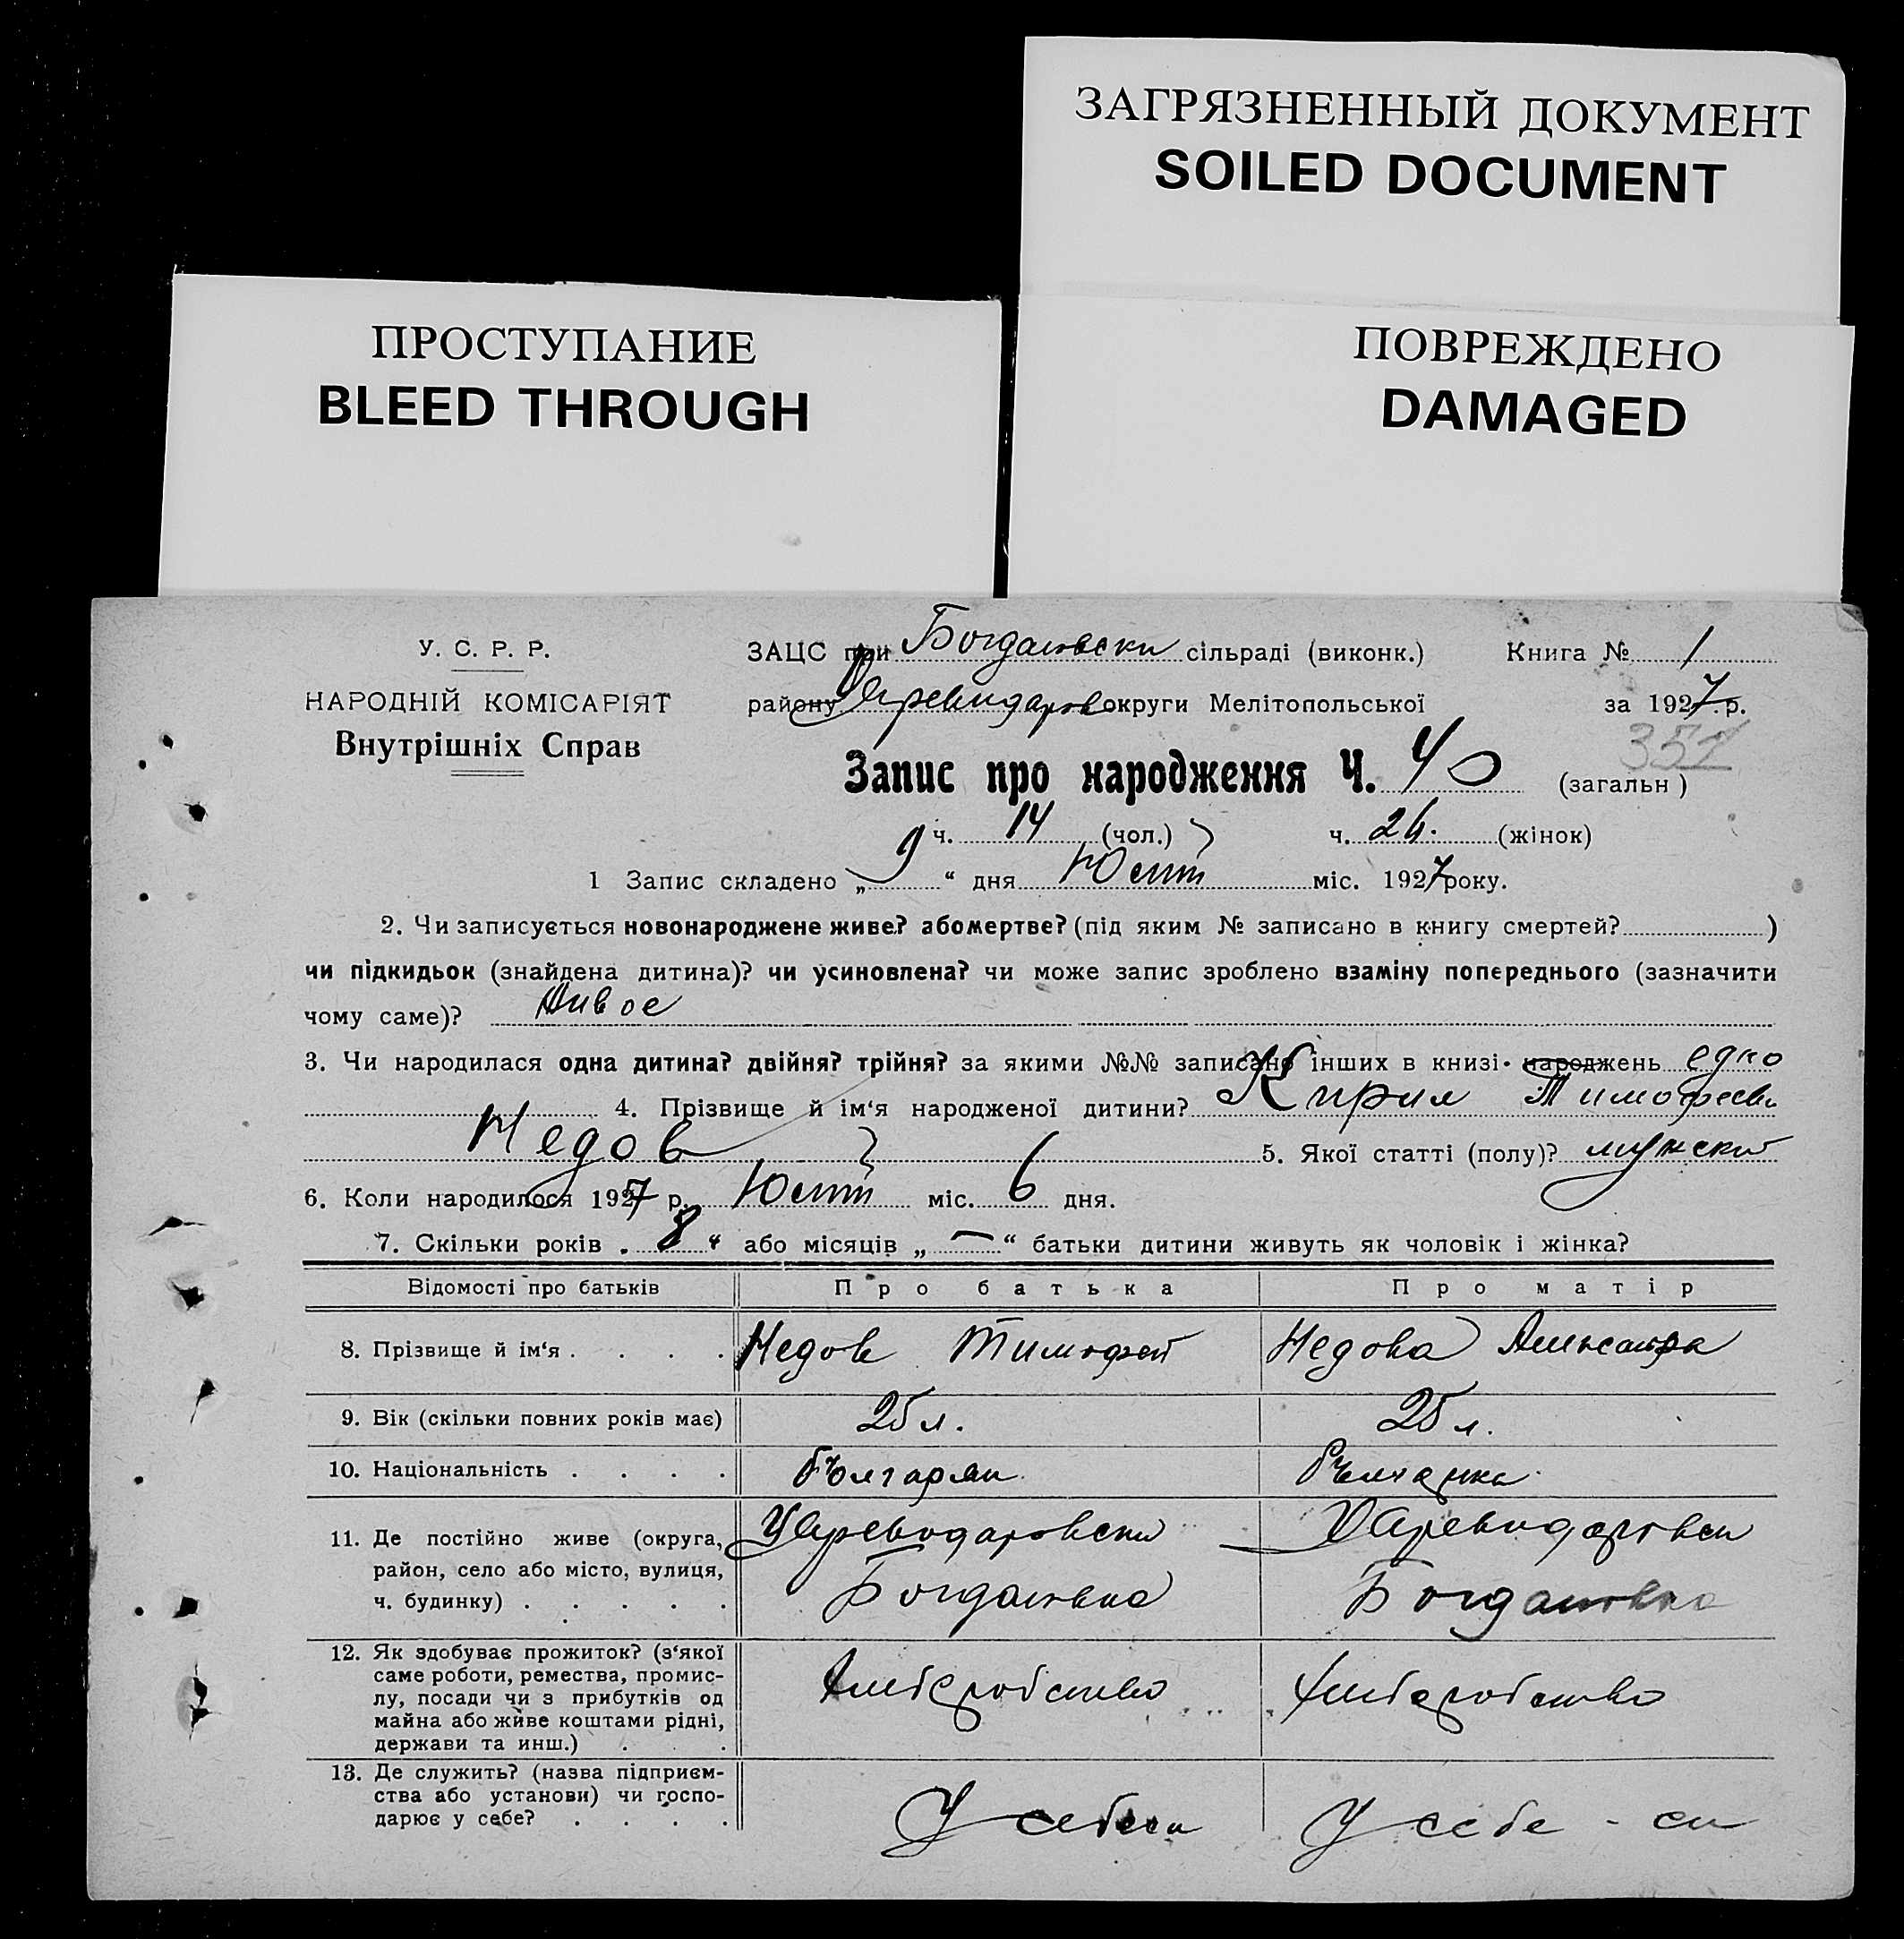 ЗАГРЯЗНЕННЫЙ ДОКУМЕНТ
SOILED DOCUMENT
ПРОСТУПАНИЕ
BLEED THROUGH
ПОВРЕЖДЕНО
DAMAGED
У. С. Р. Р.
НАРОДНІЙ КОМІСАРІЯТ
Внутрішніх Справ
ЗАЦС при Богдановски сільраді (виконк.) Книга № 1
району округи Мелітопольської за 1927 р.
351
Запис про народження Ч. 40 (загальн)
ч. 14 (чол.) ч. 26. (жінок)
1 Запис складено „ 9 “ дня Юли міс. 1927 року.
2. Чи записується новонароджене живе? абомертве? (під яким № записано в книгу смертей? )
чи підкидьок (знайдена дитина)? чи усиновлена? чи може запис зроблено взаміну попереднього (зазначити
чому саме)? Живое
3. Чи народилася одна дитина? двійня? трійня? за якими №№ записано інших в книзі народжень едно
4. Прізвище й ім‘я народженої дитини? Кирил Тимофееви
Недов 5. Якої статті (полу)? мужски
6. Коли народилося 1927 р. міс. 6 дня.
7. Скільки років „ 8 “ або місяців „ — “ батьки дитини живуть як чоловік і жінка?
Відомості про батьків Про батька Про матір
8. Прізвище й ім‘я . . . . Недов Тимофей Недова Александра
9. Вік (скільки повних років має) 25 л. 25 л.
10. Національність . . . . българин българка
11. Де постійно живе (округа, Царевидаровски Царевидаровски
район, село або місто, вулиця,
ч. будинку) . . . . . Богдановка Богдановка
12. Як здобуває прожиток? (з‘якої
саме роботи, ремества, промис-
лу, посади чи з прибутків од Хлибобробство Хлиборобство
майна або живе коштами рідні,
держави та инш.) . .
13. Де служить? (назва підприєм-
ства або установи) чи госпо-
дарює у себе? . . . . У себеси У себе - си